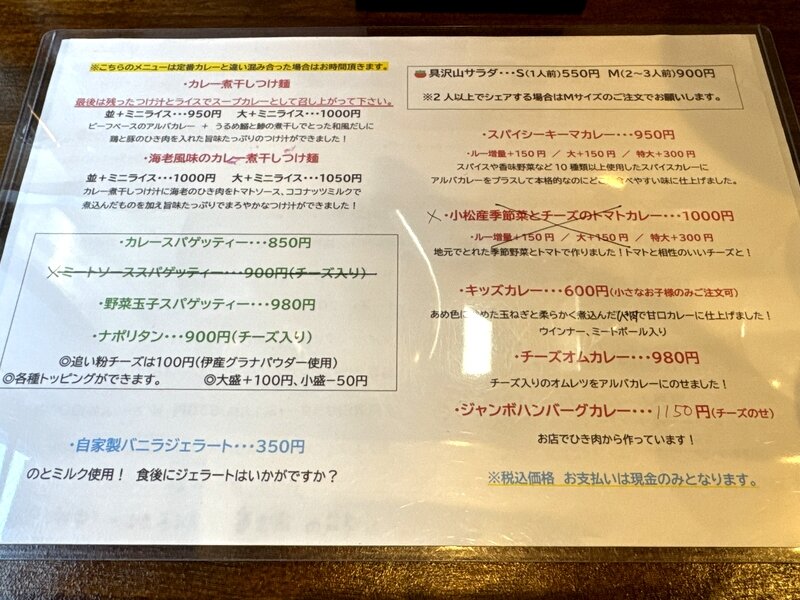 ※こちらのメニューは定番カレーと違い混み合った場合はお時間頂きます。
・カレー煮干しつけ麺
最後は残ったつけ汁とライスでスープカレーとして召し上がって下さい。
並＋ミニライス・・・950円　大＋ミニライス・・・1000円
ビーフベースのアルバカレー　＋　うるめ鰯と鯵の煮干しでとった和風だしに
鶏と豚のひき肉を入れた旨味たっぷりのつけ汁ができました！
・海老風味のカレー煮干しつけ麺
並＋ミニライス・・・1000円　大＋ミニライス・・・1050円
カレー煮干しつけ汁に海老のひき肉をトマトソース、ココナッツミルクで
煮込んだものを加え旨味たっぷりでまろやかなつけ汁ができました！
・カレースパゲッティー・・・850円
・ミートソーススパゲッティー・・・900円(チーズ入り)
・野菜玉子スパゲッティー・・・980円
・ナポリタン・・・900円(チーズ入り)
◎追い粉チーズは100円(伊産グラナパウダー使用)
◎各種トッピングができます。　◎大盛＋100円、小盛－50円
・自家製バニラジェラート・・・350円
のとミルク使用！　食後にジェラートはいかがですか？
具沢山サラダ・・・S(1人前)550円　M(2～3人前)900円
※2人以上でシェアする場合はMサイズのご注文でお願いします。
・スパイシーキーマカレー・・・950円
・ルー増量＋150円　／　大＋150円　／　特大＋300円
スパイスや香味野菜など10種類以上使用したスパイスカレーに
アルバカレーをプラスして本格的なのにどこか食べやすい味に仕上げました。
・小松産季節菜とチーズのトマトカレー・・・1000円
・ルー増量＋150円　／　大＋150円　／　特大＋300円
地元でとれた季節野菜とトマトで作りました！トマトと相性のいいチーズと！
・キッズカレー・・・600円(小さなお子様のみご注文可)
あめ色に炒めた玉ねぎと柔らかく煮込んだひき肉で甘口カレーに仕上げました！
ウインナー、ミートボール入り
・チーズオムカレー・・・980円
チーズ入りのオムレツをアルバカレーにのせました！
・ジャンボハンバーグカレー・・・1150円(チーズのせ)
お店でひき肉から作っています！
※税込価格　お支払いは現金のみとなります。